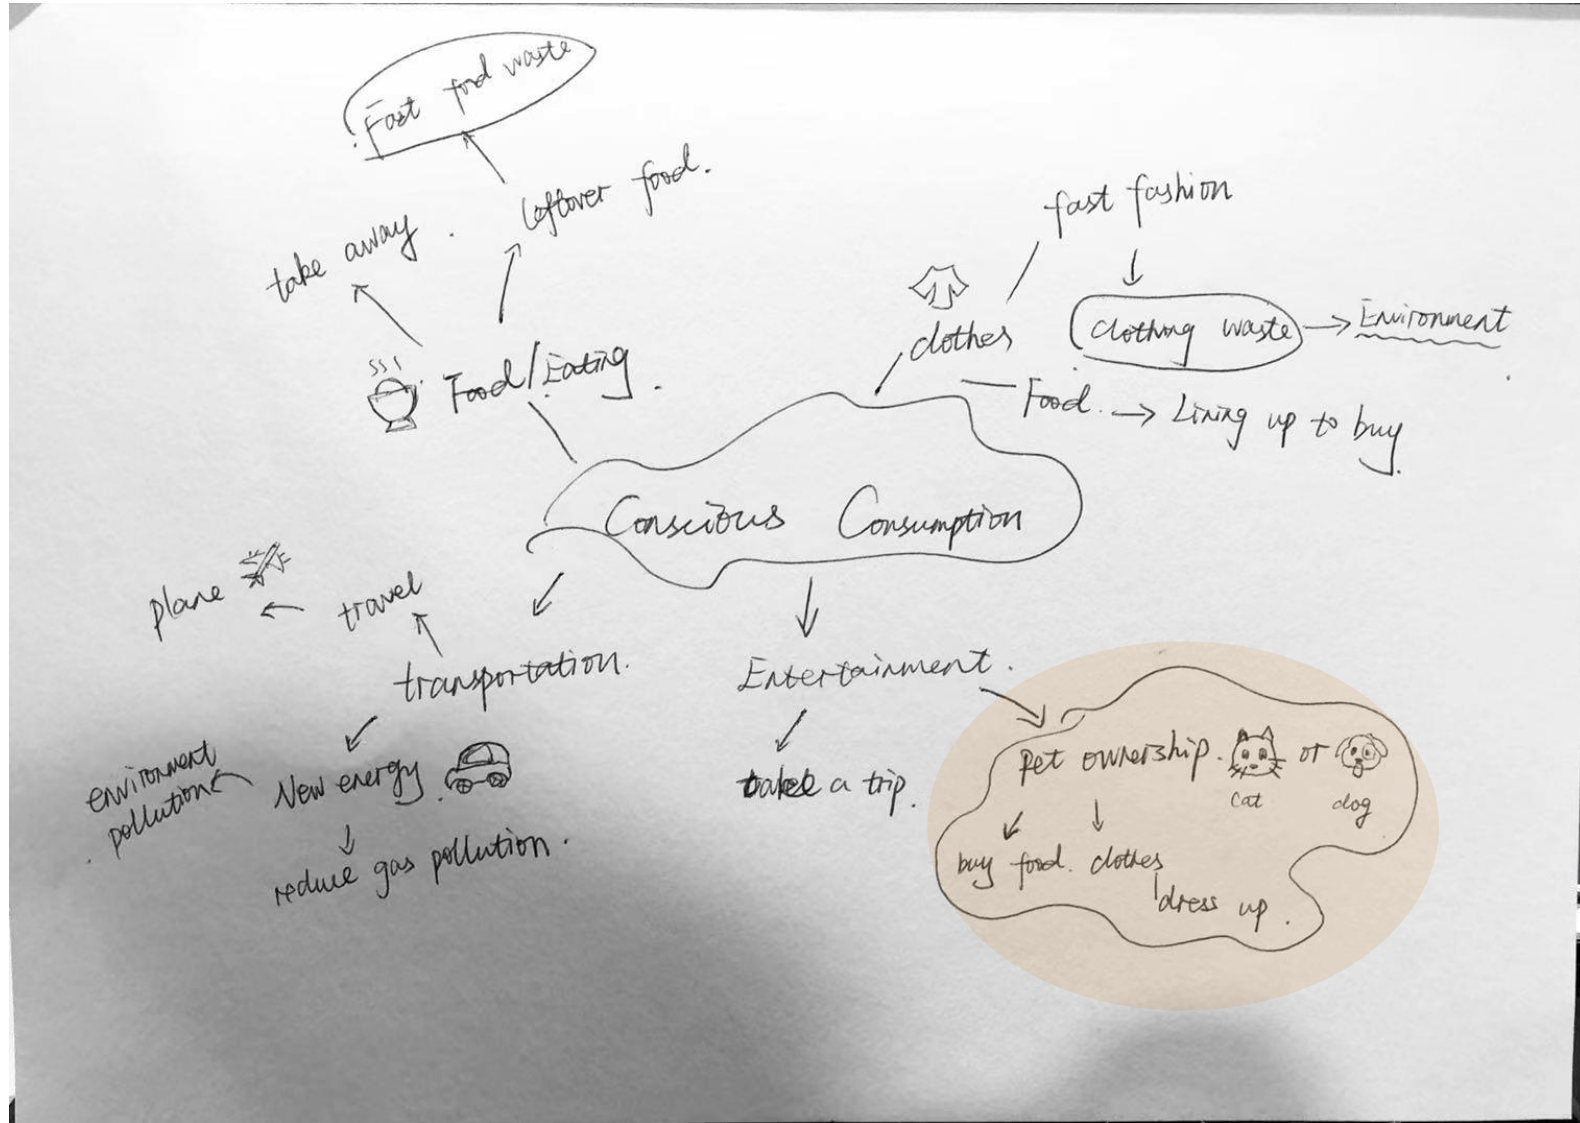 Fast food waste
leftover food.
take away.
Food/Eating.
fast fashion
clothes
clothing waste
Environment
Food.
Lining up to buy
Conscious Consumption
plane
travel
transportation.
environment
pollution
New energy.
reduce gas pollution.
Entertainment.
take a trip.
Pet ownership. or
cat
dog
buy food. clothes
dress up.